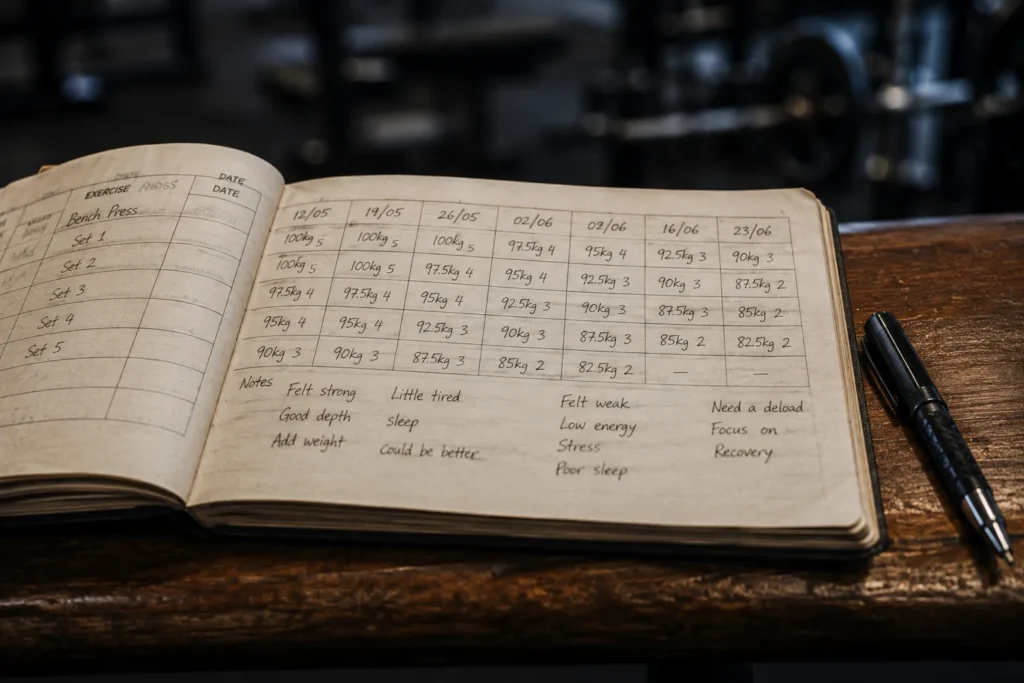 EXERCISE
DATE
DATE
Bench Press
Set 1
Set 2
Set 3
Set 4
Set 5
12/05 19/05 26/05 02/06 09/06 16/06 23/06
100kg 5 100kg 5 100kg 5 97.5kg 4 95kg 4 92.5kg 3 90kg 3
100kg 5 100kg 5 97.5kg 4 95kg 4 92.5kg 3 90kg 3 87.5kg 2
97.5kg 4 97.5kg 4 95kg 4 92.5kg 3 90kg 3 87.5kg 3 85kg 2
95kg 4 95kg 4 92.5kg 3 90kg 3 87.5kg 3 85kg 2 82.5kg 2
90kg 3 90kg 3 87.5kg 3 85kg 2 82.5kg 2 — —
Notes
Felt strong
Good depth
Add weight
Little tired
sleep
Could be better
Felt weak
Low energy
Stress
Poor sleep
Need a deload
Focus on
Recovery